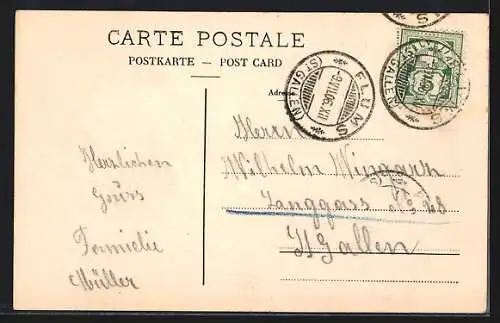 CARTE POSTALE
POSTKARTE — POST CARD
Adresse
FLUMS
(ST GALLEN)
Herrn
Wilhelm Wingart
Langgass No. 28
St Gallen
Herzlichen
Gruss
Familie
Müller